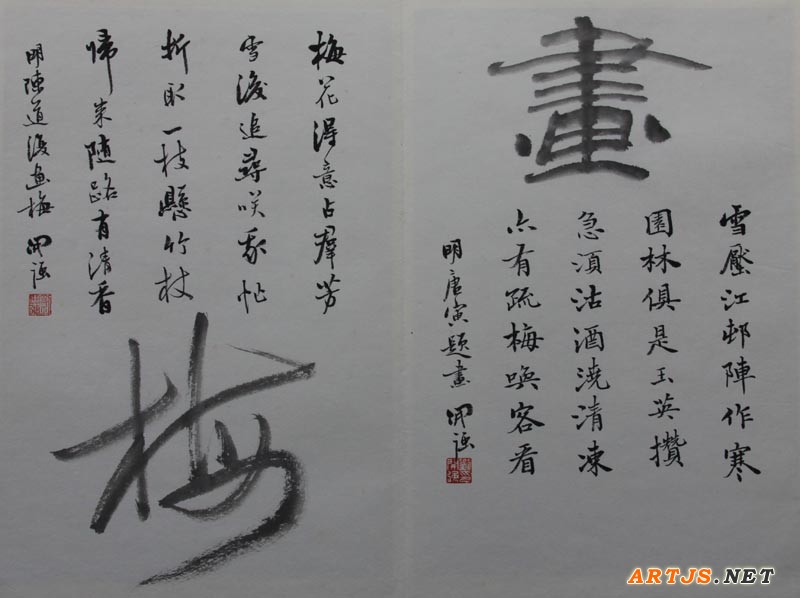 畫
雪壓江邨陣作寒
園林俱是玉英攢
急須沽酒澆清凍
亦有疏梅喚客看
明唐寅題畫
梅花得意占群芳
雪後追尋笑我忙
折取一枝懸竹杖
歸來隨路有清香
明陳道復畫梅
梅
ARTJS.NET